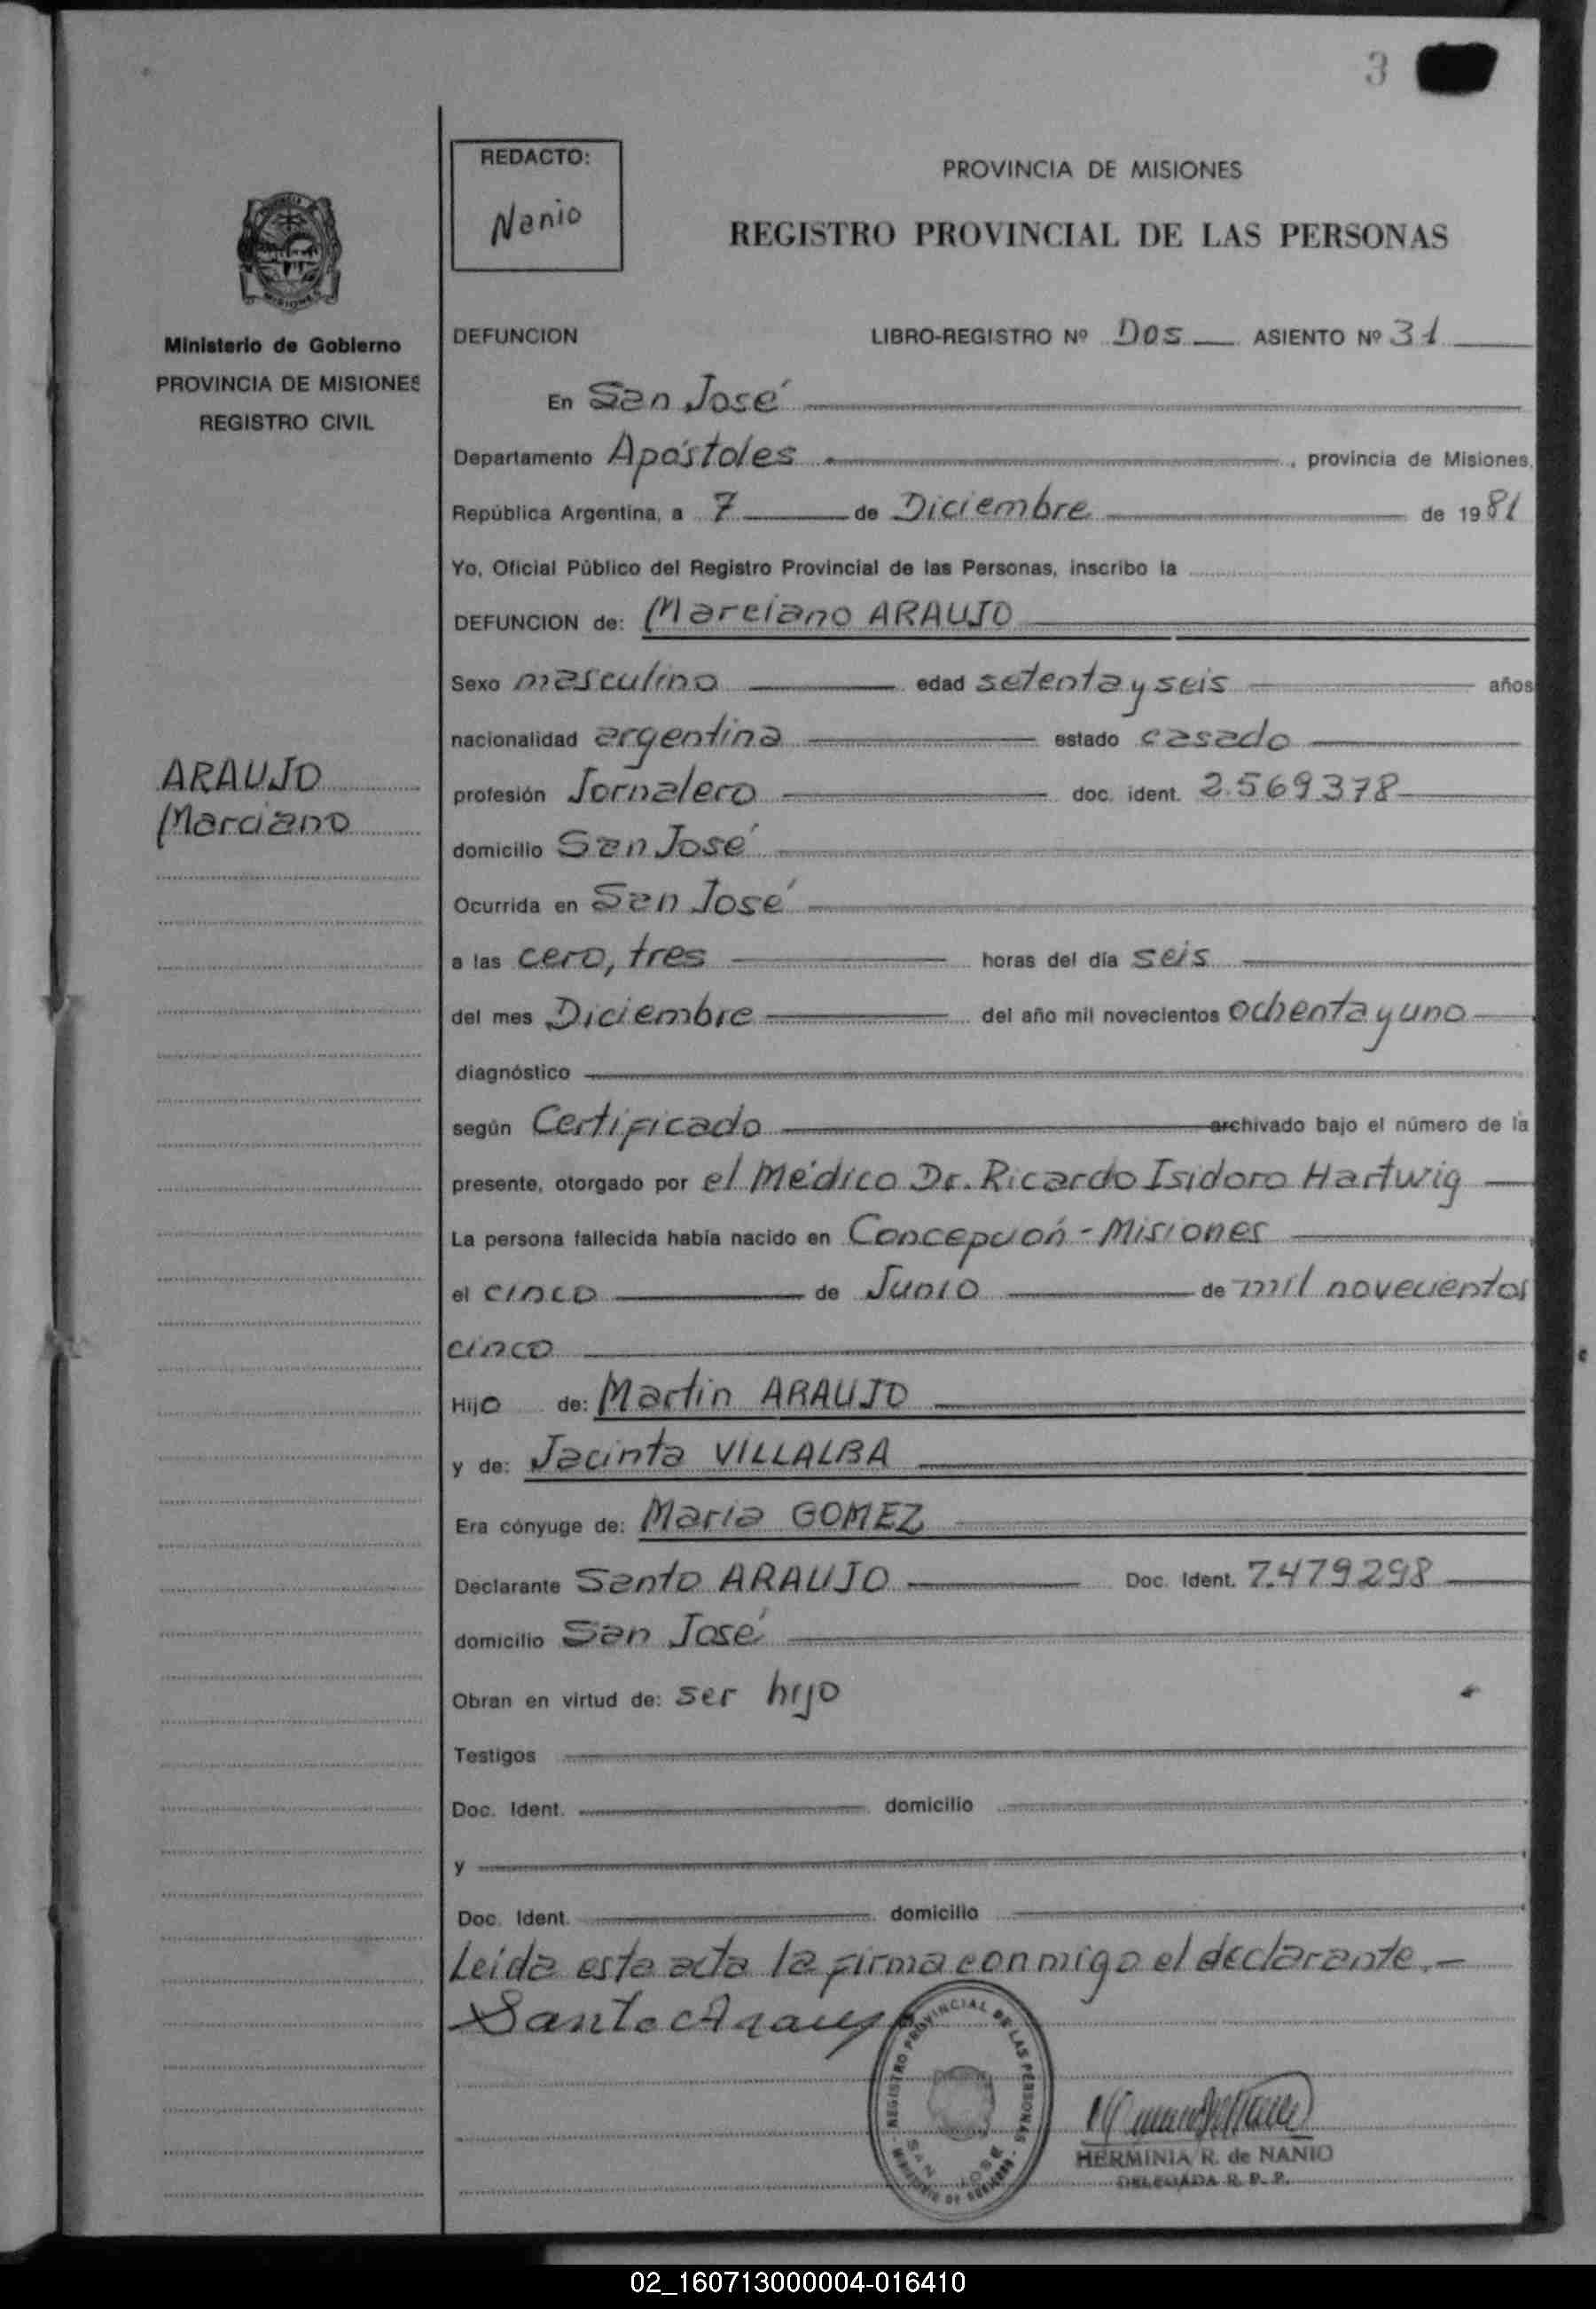 3
REDACTO:
Nanio
PROVINCIA DE MISIONES
REGISTRO PROVINCIAL DE LAS PERSONAS
MISIONES
Ministerio de Gobierno
PROVINCIA DE MISIONES
REGISTRO CIVIL
ARAUJO
Marciano
DEFUNCION LIBRO-REGISTRO Nº Dos ASIENTO Nº 31
En San José
Departamento Apóstoles, provincia de Misiones,
República Argentina, a 7 de Diciembre de 1981
Yo, Oficial Público del Registro Provincial de las Personas, inscribo la
DEFUNCION de: Marciano ARAUJO
Sexo masculino edad setenta y seis años
nacionalidad argentina estado casado
profesión Jornalero doc. ident. 2.569.378
domicilio San José
Ocurrida en San José
a las cero, tres horas del día seis
del mes Diciembre del año mil novecientos ochenta y uno
diagnóstico
según Certificado archivado bajo el número de la
presente, otorgado por el Médico Dr. Ricardo Isidoro Hartwig
La persona fallecida había nacido en Concepción - Misiones
el cinco de Junio de mil novecientos
cinco
Hijo de: Martin ARAUJO
y de: Jacinta VILLALBA
Era cónyuge de: Maria GOMEZ
Declarante Santo ARAUJO Doc. Ident. 7.479.298
domicilio San José
Obran en virtud de: ser hijo
Testigos
Doc. Ident. domicilio
y
Doc. Ident. domicilio
Leida esta acta la firma conmigo el declarante.-
Santo Araujo
REGISTRO PROVINCIAL DE LAS PERSONAS
SAN JOSE
MINISTERIO DE GOBIERNO
HERMINIA R. de NANIO
DELEGADA R. P. P.
02_160713000004-016410